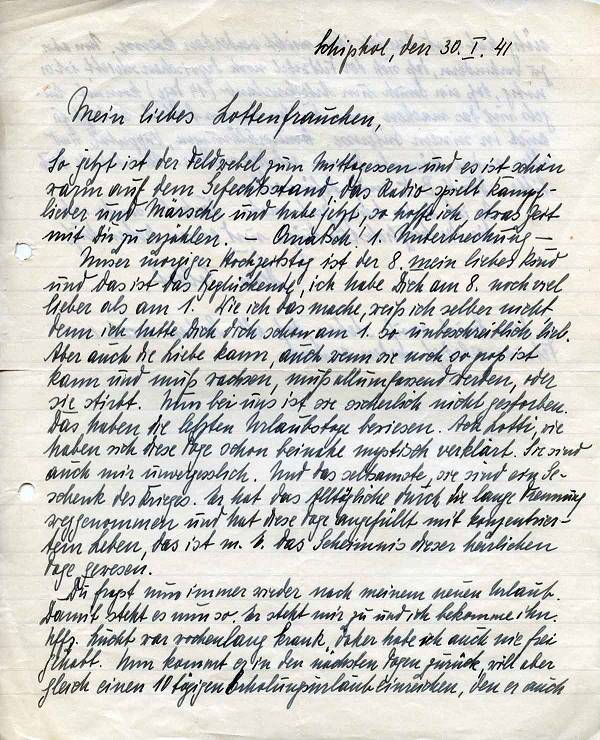 Schiphol, den 30. I. 41
Mein liebes Lottenfrauchen,
So jetzt ist der Feldwebel zum Mittagessen und es ist schön
warm auf dem Gefechtsstand, das Radio spielt Kampf-
lieder und Märsche und habe jetzt, so hoffe ich, etwas Zeit
mit Dir zu erzählen. – 1. Unterbrechung –
Unser morgiger Hochzeitstag ist der 8. mein liebes Kind
und das ist das Beglückende, ich habe Dich am 8. noch viel
lieber als am 1. Wie ich das mache, weiß ich selber nicht
denn ich hatte Dich doch schon am 1. so unbeschreiblich lieb.
Aber auch die Liebe kann, auch wenn sie noch so groß ist
kann und muß wachsen, muß allumfassend werden, oder
sie stirbt. Nun bei uns ist sie sicherlich nicht gestorben.
Das haben die letzten Urlaubstage bewiesen. Ach Lotti, wie
haben sich diese Tage schon beinahe mystisch verklärt. Sie sind
auch mir unvergesslich. Und das seltsamste, sie sind ein Ge-
schenk des Krieges. Er hat das Alltägliche durch die lange Trennung
weggenommen und hat diese Tage angefüllt mit konzentrier-
tem Leben, das ist m. E. das Geheimnis dieser herrlichen
Tage gewesen.
Du fragst nun immer wieder nach meinem neuen Urlaub.
Damit steht es nun so. Er steht mir zu und ich bekomme ihn.
Uffz. Lucht war wochenlang krank, daher habe ich auch nie frei
gehabt. Nun kommt er in den nächsten Tagen zurück, will aber
gleich einen 10 tägigen Erholungsurlaub einreichen, den er auch